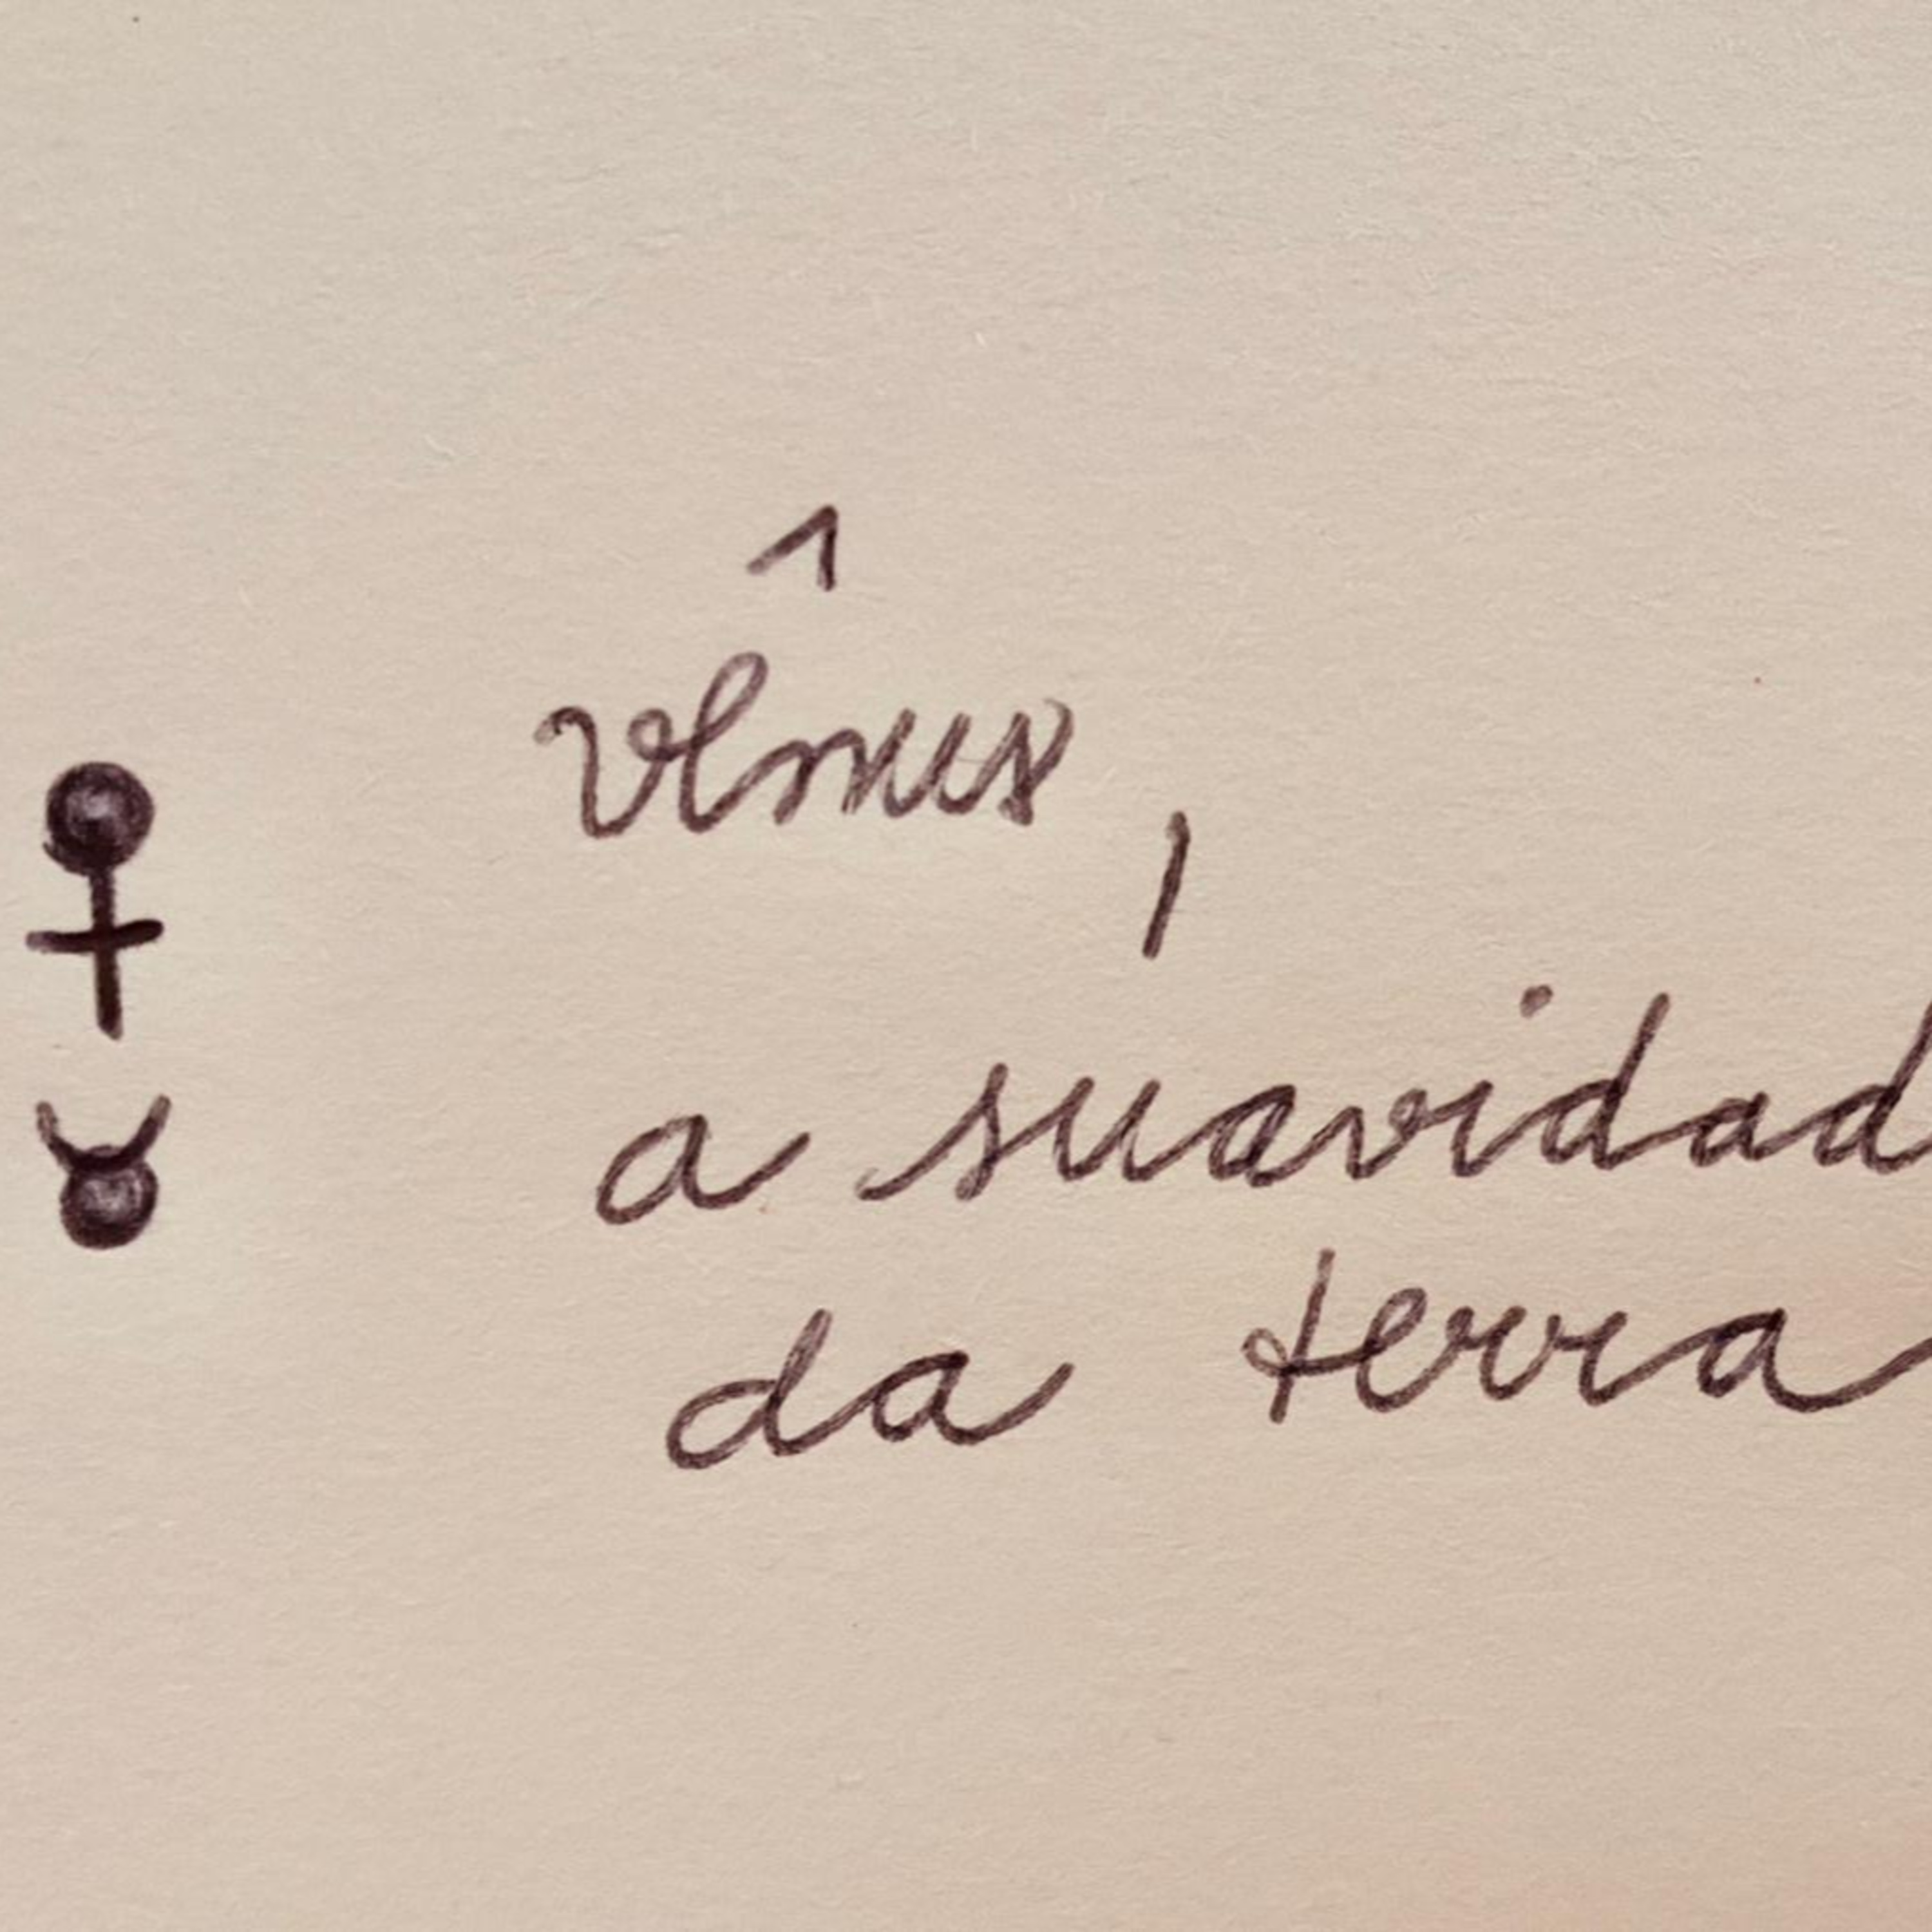 vênus,
a suavidad
da terra